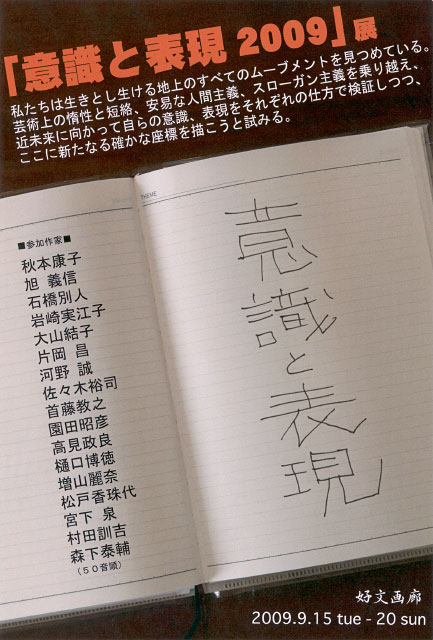 「意識と表現 2009」展
私たちは生きとし生ける地上のすべてのムーブメントを見つめている。
芸術上の惰性と短絡、安易な人間主義、スローガン主義を乗り越え、
近未来に向かって自らの意識、表現をそれぞれの仕方で検証しつつ、
ここに新たなる確かな座標を描こうと試みる。
THEME
■参加作家■
秋本康子
旭 義信
石橋別人
岩崎実江子
大山結子
片岡 昌
河野 誠
佐々木裕司
首藤教之
園田昭彦
高見政良
樋口博徳
増山麗奈
松戸香珠代
宮下 泉
村田訓吉
森下泰輔
(50音順)
意
識
と
表
現
好文画廊
2009.9.15 tue - 20 sun